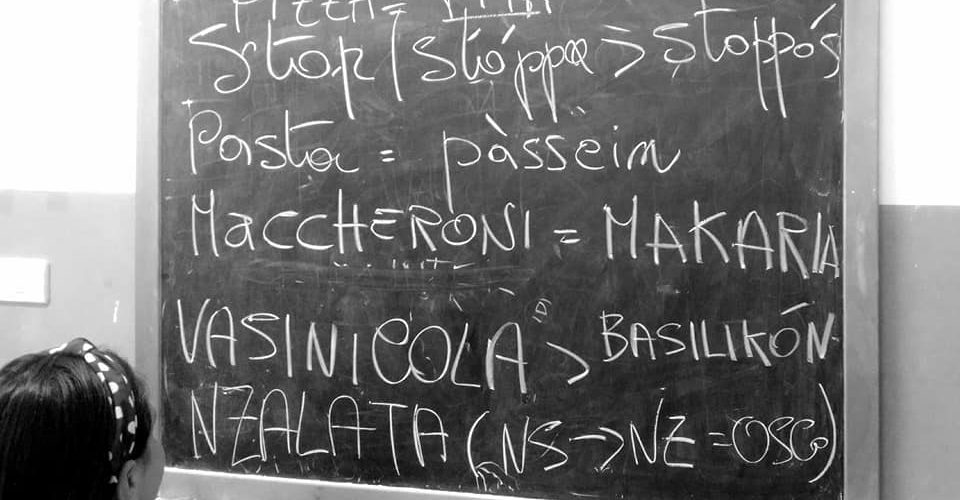 PIZZA =
Stop / stóppa > stoppós
Pasta = pàssein
MaccHERONI = MAKARIA
VASINICOLA > BASILIKÓN
NZALATA (NS → NZ = OSCO)